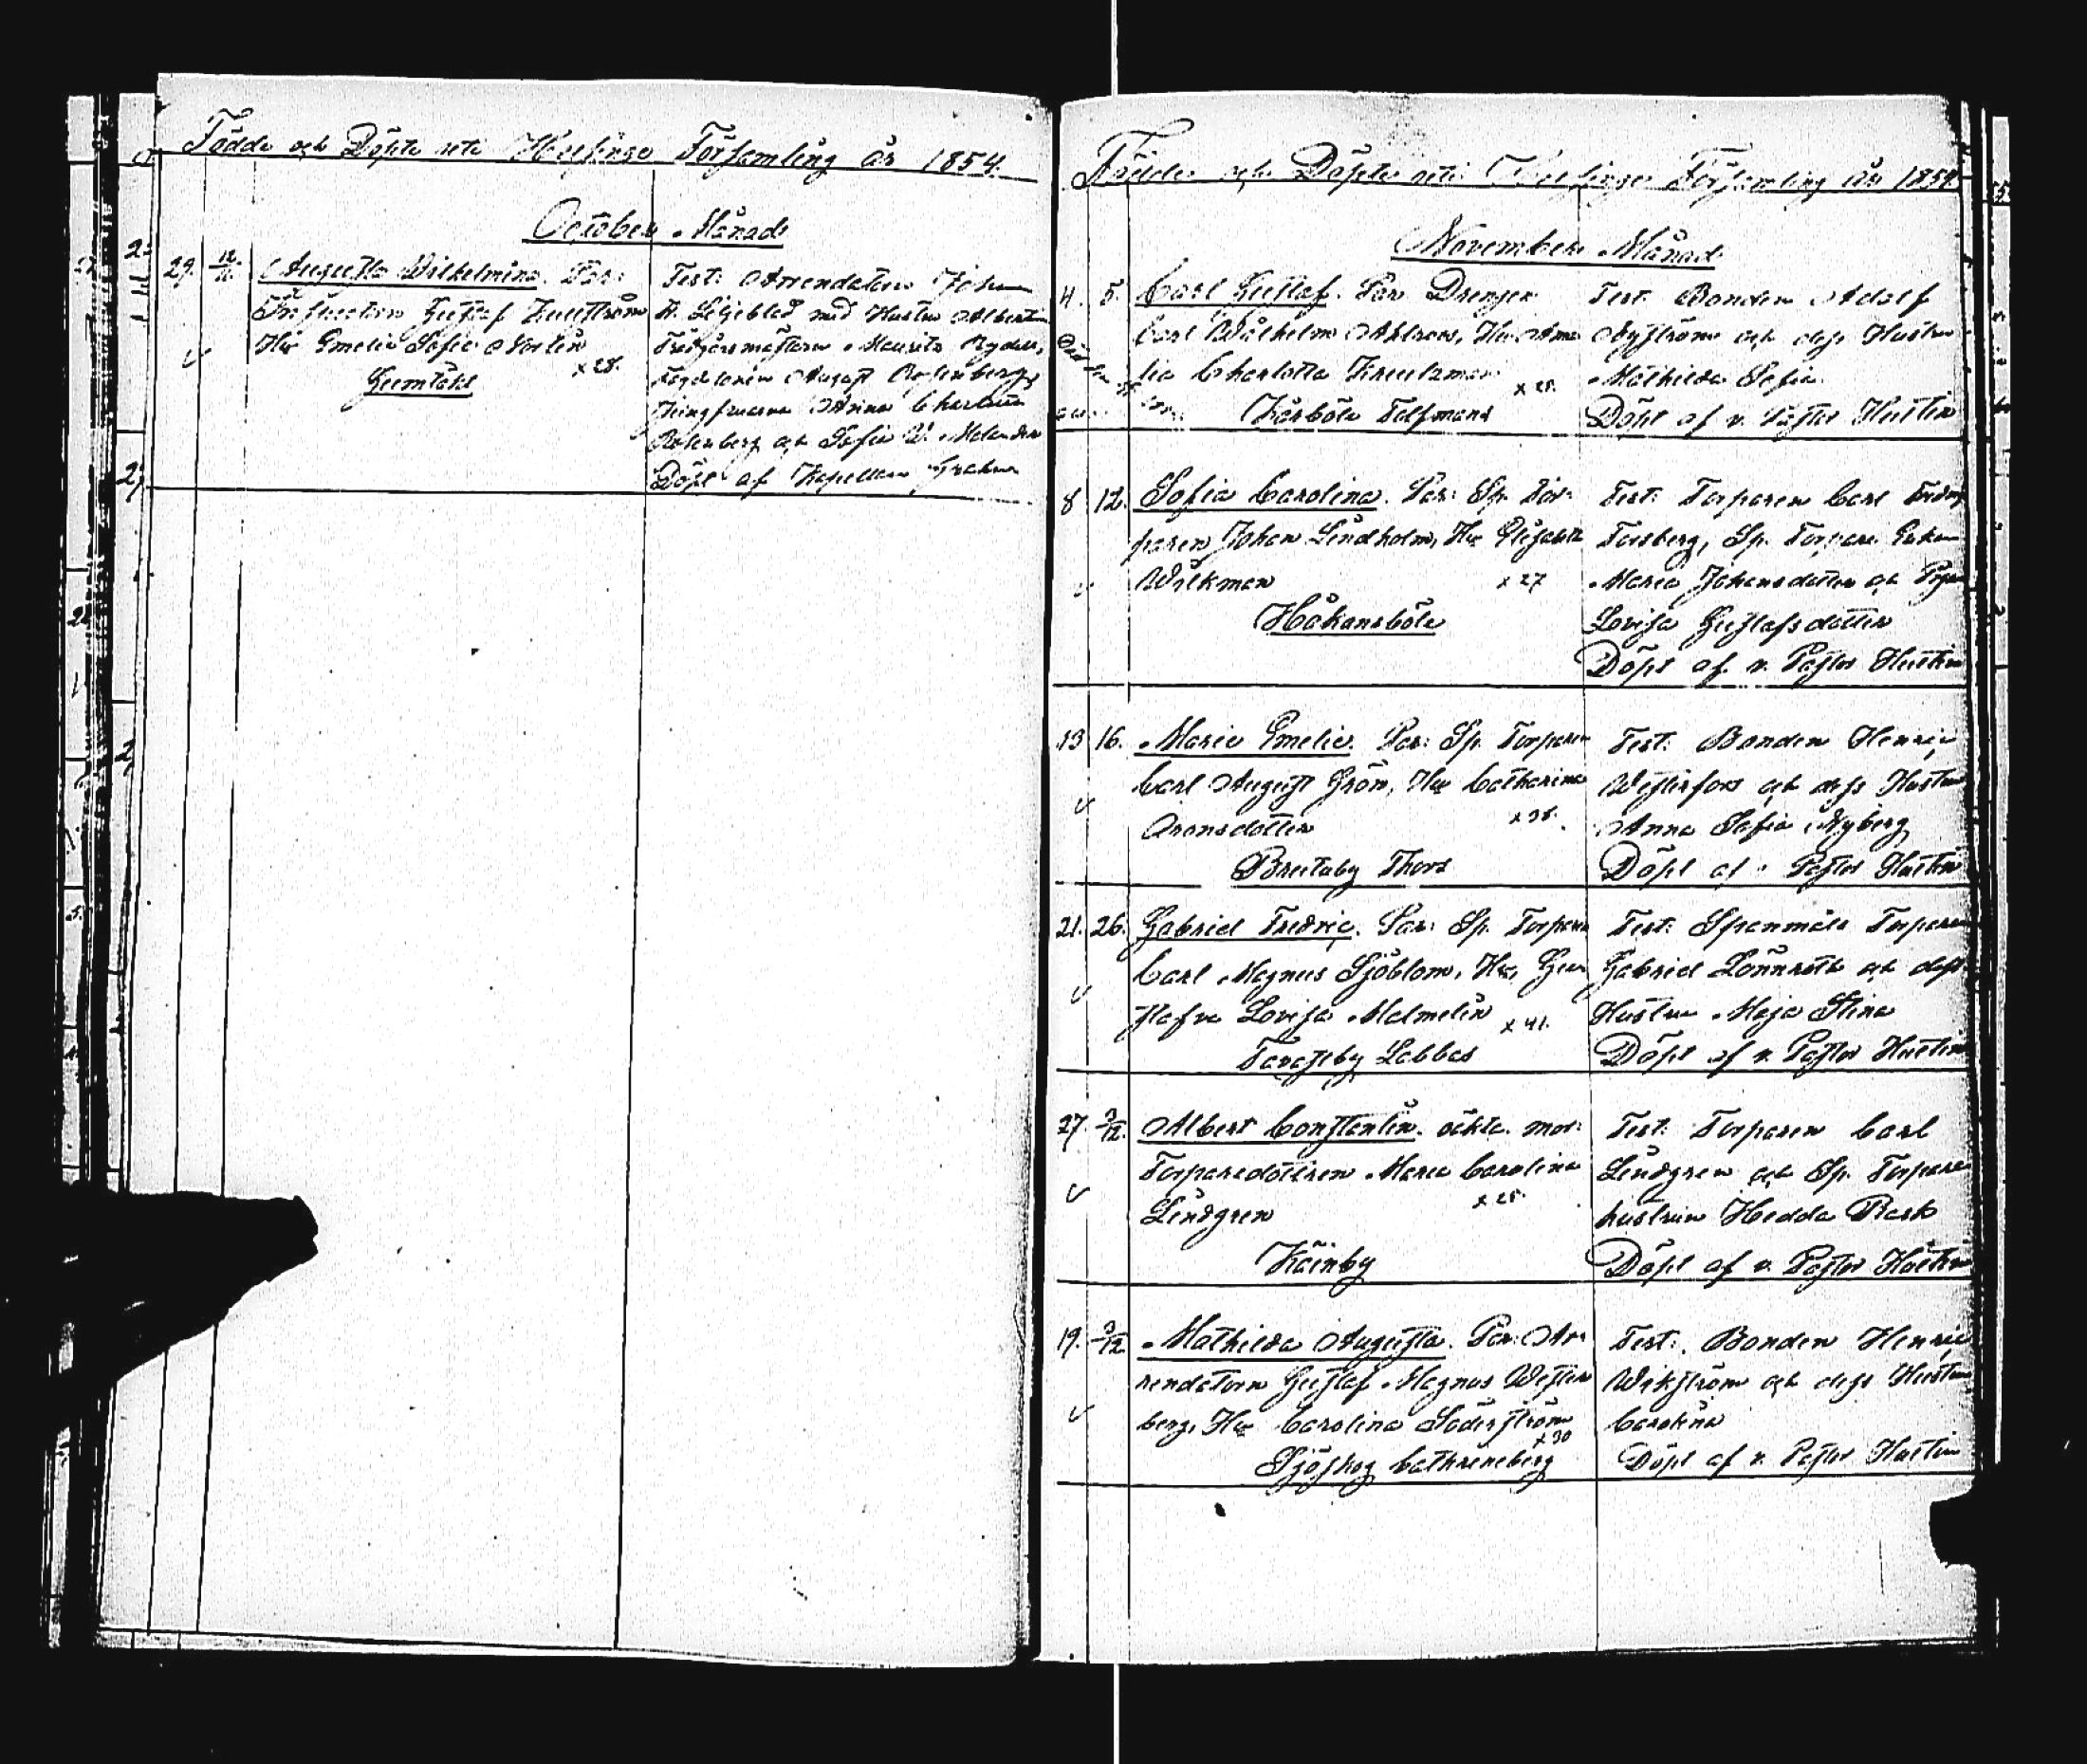 Födde och Döpte uti Helsinge Församling år 1854.
October Månad
29. 12/11. Augusta Wilhelmina. Par:
Gustaf
Hu Emelie Sofie Norlin
x 28.
Gumtäkt
Test: Arrendatorn Johan
A. Liljeblad med Hustru Albertin
Trädgårsmästarn Mauritz Ryder,
August Rosenberg,
Jungfruarna Anna Charlotta
Rosenberg och Sofia W. Melander
Döpt af Kapellan Grahn
Födde och Döpte uti Helsinge Församling år 1854.
November Månad
4. 5. Carl Gustaf. Par Drengen
Carl Wilhelm Ahlroos, Hu Ama
lia Charlotta Kreutzman x 25.
Kårböle Tolfmans
Test: Bonden Adolf
Nyström och dess Hustru
Mathilda Sofia
Döpt af v. Pastor Hustin
8 12. Sofia Carolina. Par: Sp. Tor-
paren Johan Lindholm, Hu Elisabeth
Wilkman x 27
Håkansböle
Test: Torparen Carl
Forsberg, Sp. Torpare Enkan
Maria Johansdotter och
Lovisa Gustafsdotter
Döpt af v. Pastor Hustin
13 16. Maria Emelie. Par: Sp. Torparen
Carl August Grön, Hu Catharina
Aronsdotter x 38.
Brutaby Thors
Test: Bonden Henric
Westerfors och dess Hustru
Anna Sofia Nyberg
Döpt af v Pastor Hustin
21. 26. Gabriel Fredric. Par: Sp. Torparen
Carl Magnus Sjöblom, Hu, Gus
tafva Lovisa Malmelin x 41.
Tavastby Labbas
Test: Spanmåls Torparen
Gabriel Lönnroth och dess
Hustru Maja Stina
Döpt af v. Pastor Hustin
27 3/12. Albert Constantin. oäkta. mod:
Torparedottren Maria Carolina
Lindgren x 25.
Käinby
Test: Torparen Carl
Lindgren och Sp. Torpare
hustrun Hedda Rask
Döpt af v. Pastor Hustin
19. 3/12 Mathilda Augusta. Par: Ar-
rendatorn Gustaf Magnus Wester
berg, Hu Carolina Söderström
x 30
Sjöskog Cathrineberg
Test: Bonden Henric
Wikström och dess Hustru
Carolina
Döpt af v. Pastor Hustin